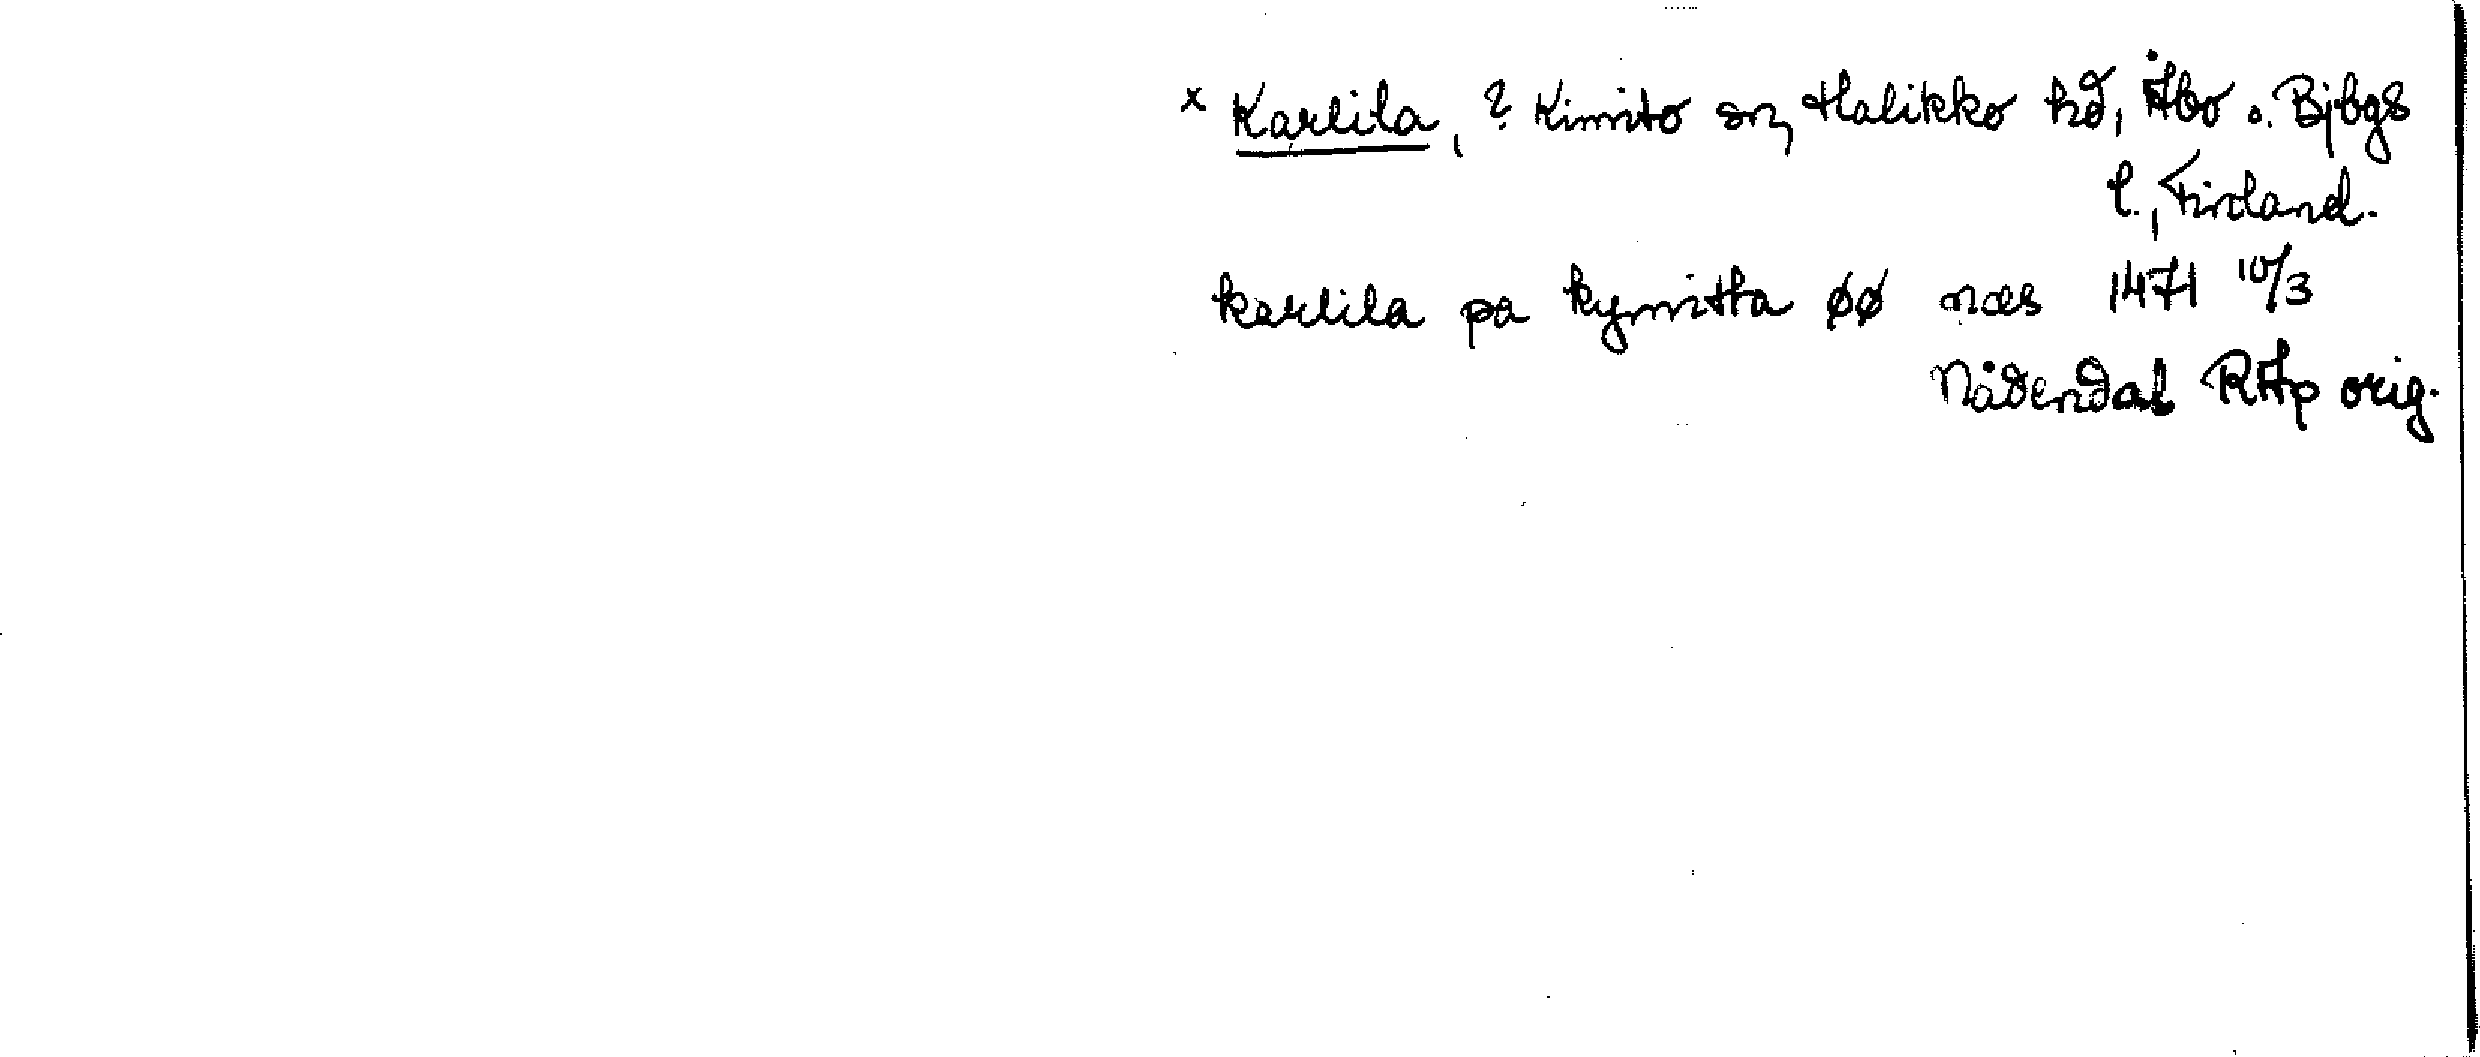 x Karlila, ? Kimito sn, Halikko hd, Åbo o. Bjbgs
l., Finland.
karlila pa kymitta øø næs 1471 10/3
Nådendal RAp orig.